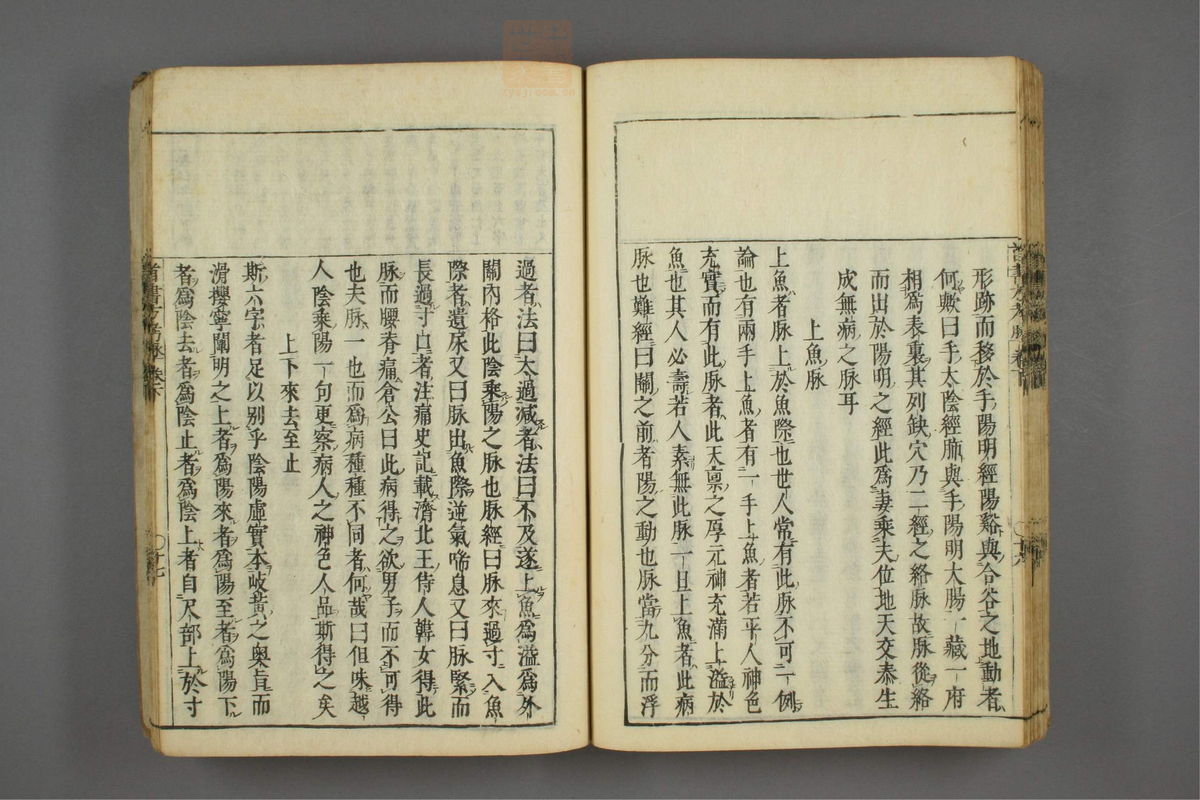 形跡而移於手陽明經陽谿與合谷之地動者
何歟曰手太陰經肺與手陽明大腸一藏一府
相為表裏其列缺穴乃二經之絡脉故脉從絡
而出於陽明之經此為妻乘夫位地天交泰生
成無病之脉耳
上魚脉
上魚者脉上於魚際也世人常有此脉不可一例
論也有兩手上魚者有一手上魚者若平人神色
充實而有此脉者此天禀之厚元神充滿上溢於
魚也其人必壽若人素無此脉一旦上魚者此病
脉也難經曰關之前者陽之動也脉當九分而浮
過者法曰太過減者法曰不及遂上魚為溢為外
關內格此陰乘陽之脉也脉經曰脉來過寸入魚
際者遺尿又曰脉出魚際逆氣喘息又曰脉緊而
長過寸口者注痛史記載濟北王侍人韓女得此
脉而腰脊痛倉公曰此病得之欲男子而不可得
也夫脉一也而為病種種不同者何哉曰但味越
人陰乘陽一句更察病人之神色人品斯得之矣
上下來去至止
斯六字者足以別乎陰陽虛實本岐黃之奧旨而
滑攖寧闡明之上者為陽來者為陽至者為陽下
者為陰去者為陰止者為陰上者自尺部上於寸